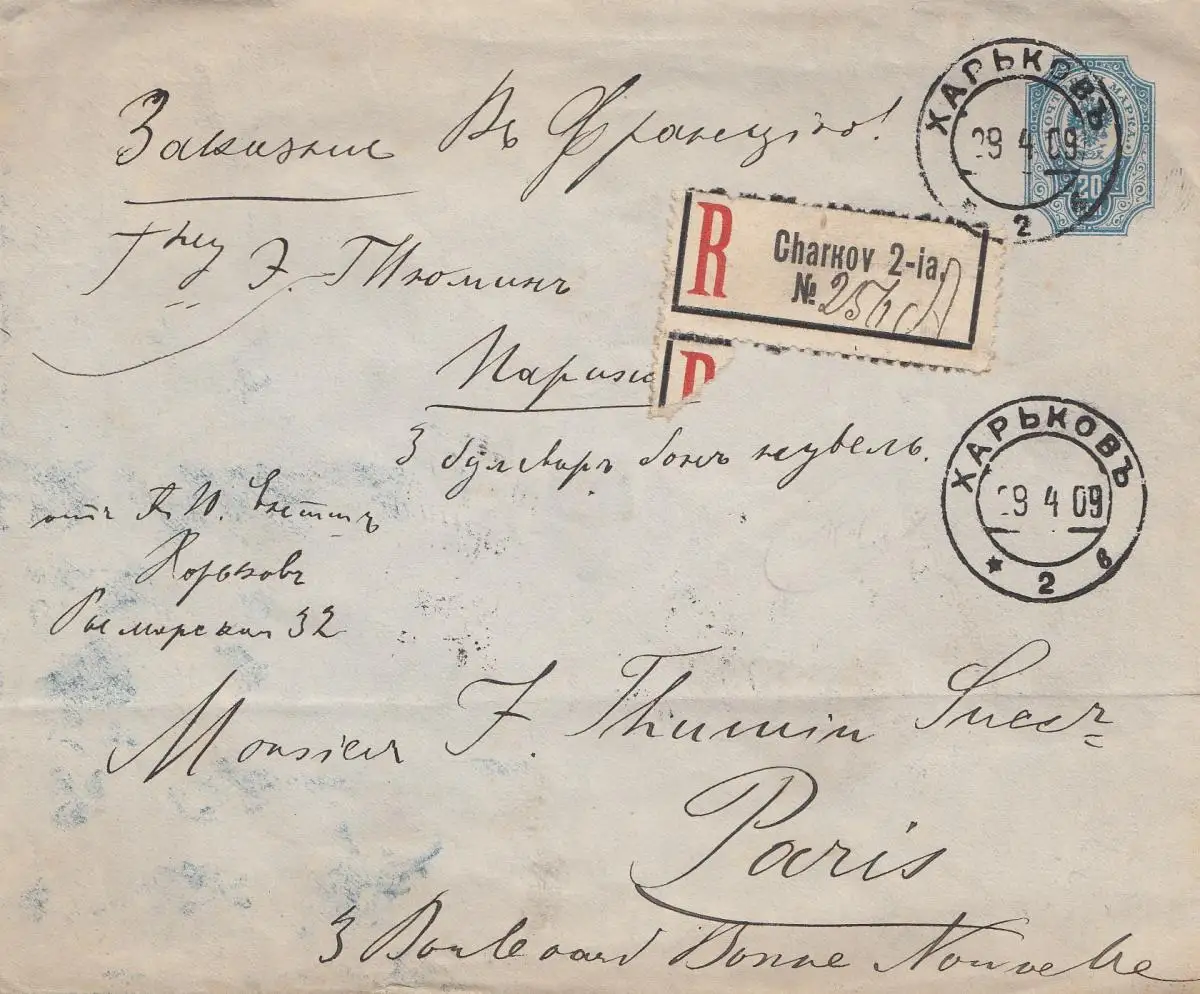 Заказное Въ Францію!
ХАРЬКОВЪ
29 4 09
2
ПОЧТОВАЯ МАРКА
20
Гну Э. Тюминъ
R Charkov 2-ia.
№ 256
Парижъ
R
3 бульваръ боннъ нувель.
ХАРЬКОВЪ
29 4 09
* 2 в
отъ А. Ю.
Харьковъ
Рымарская 32
Monsieur F. Thumin Succr
Paris
3 Boulevard Bonne Nouvelle